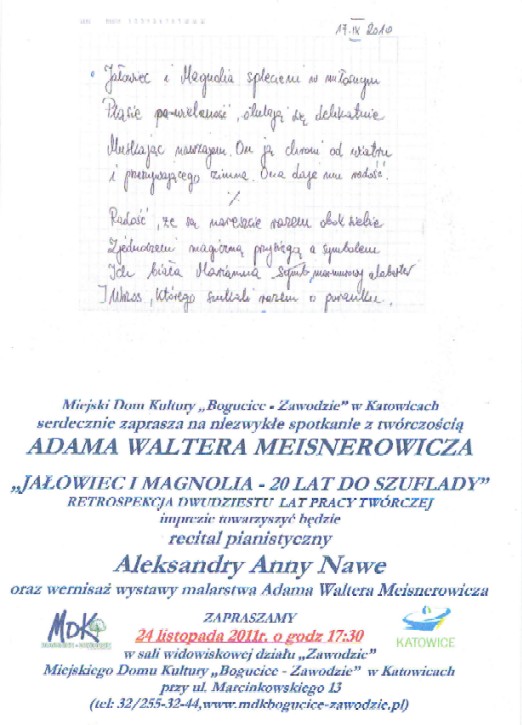 17.IX 2010
Jałowiec i Magnolia spleceni w miłosnym
otulają się delikatnie
Muskając nawzajem. On ją chroni od wiatru
i zimna. Ona daje mu radość.
Radość, że są nareszcie razem obok siebie
Zjednoczeni magiczną przysięgą a symbolem
Ich biała Marianna
Wrzos, którego szukali razem o poranku.
Miejski Dom Kultury „Bogucice - Zawodzie” w Katowicach
serdecznie zaprasza na niezwykłe spotkanie z twórczością
ADAMA WALTERA MEISNEROWICZA
„JAŁOWIEC I MAGNOLIA - 20 LAT DO SZUFLADY”
RETROSPEKCJA DWUDZIESTU LAT PRACY TWÓRCZEJ
imprezie towarzyszyć będzie
recital pianistyczny
Aleksandry Anny Nawe
oraz wernisaż wystawy malarstwa Adama Waltera Meisnerowicza
ZAPRASZAMY
MDK
24 listopada 2011r. o godz 17:30
KATOWICE
w sali widowiskowej działu „Zawodzie”
Miejskiego Domu Kultury „Bogucice - Zawodzie” w Katowicach
przy ul. Marcinkowskiego 13
(tel: 32/255-32-44,www.mdkbogucice-zawodzie.pl)